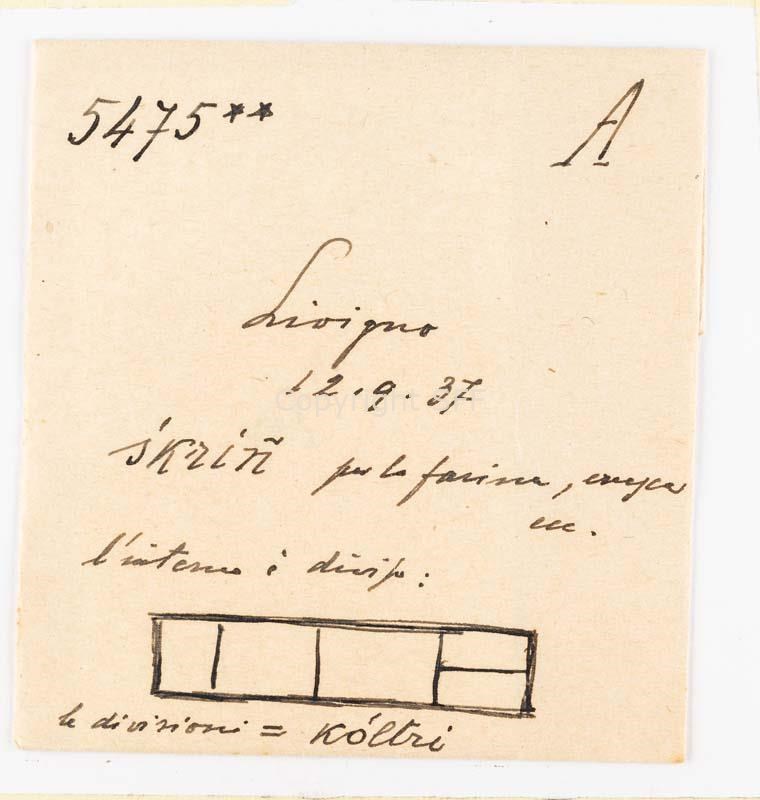 5475** A
Livigno
12.9.37
Copyright
śkríñ per la farina, crusca
ecc.
l'interno è diviso:
le divisioni = kóltri